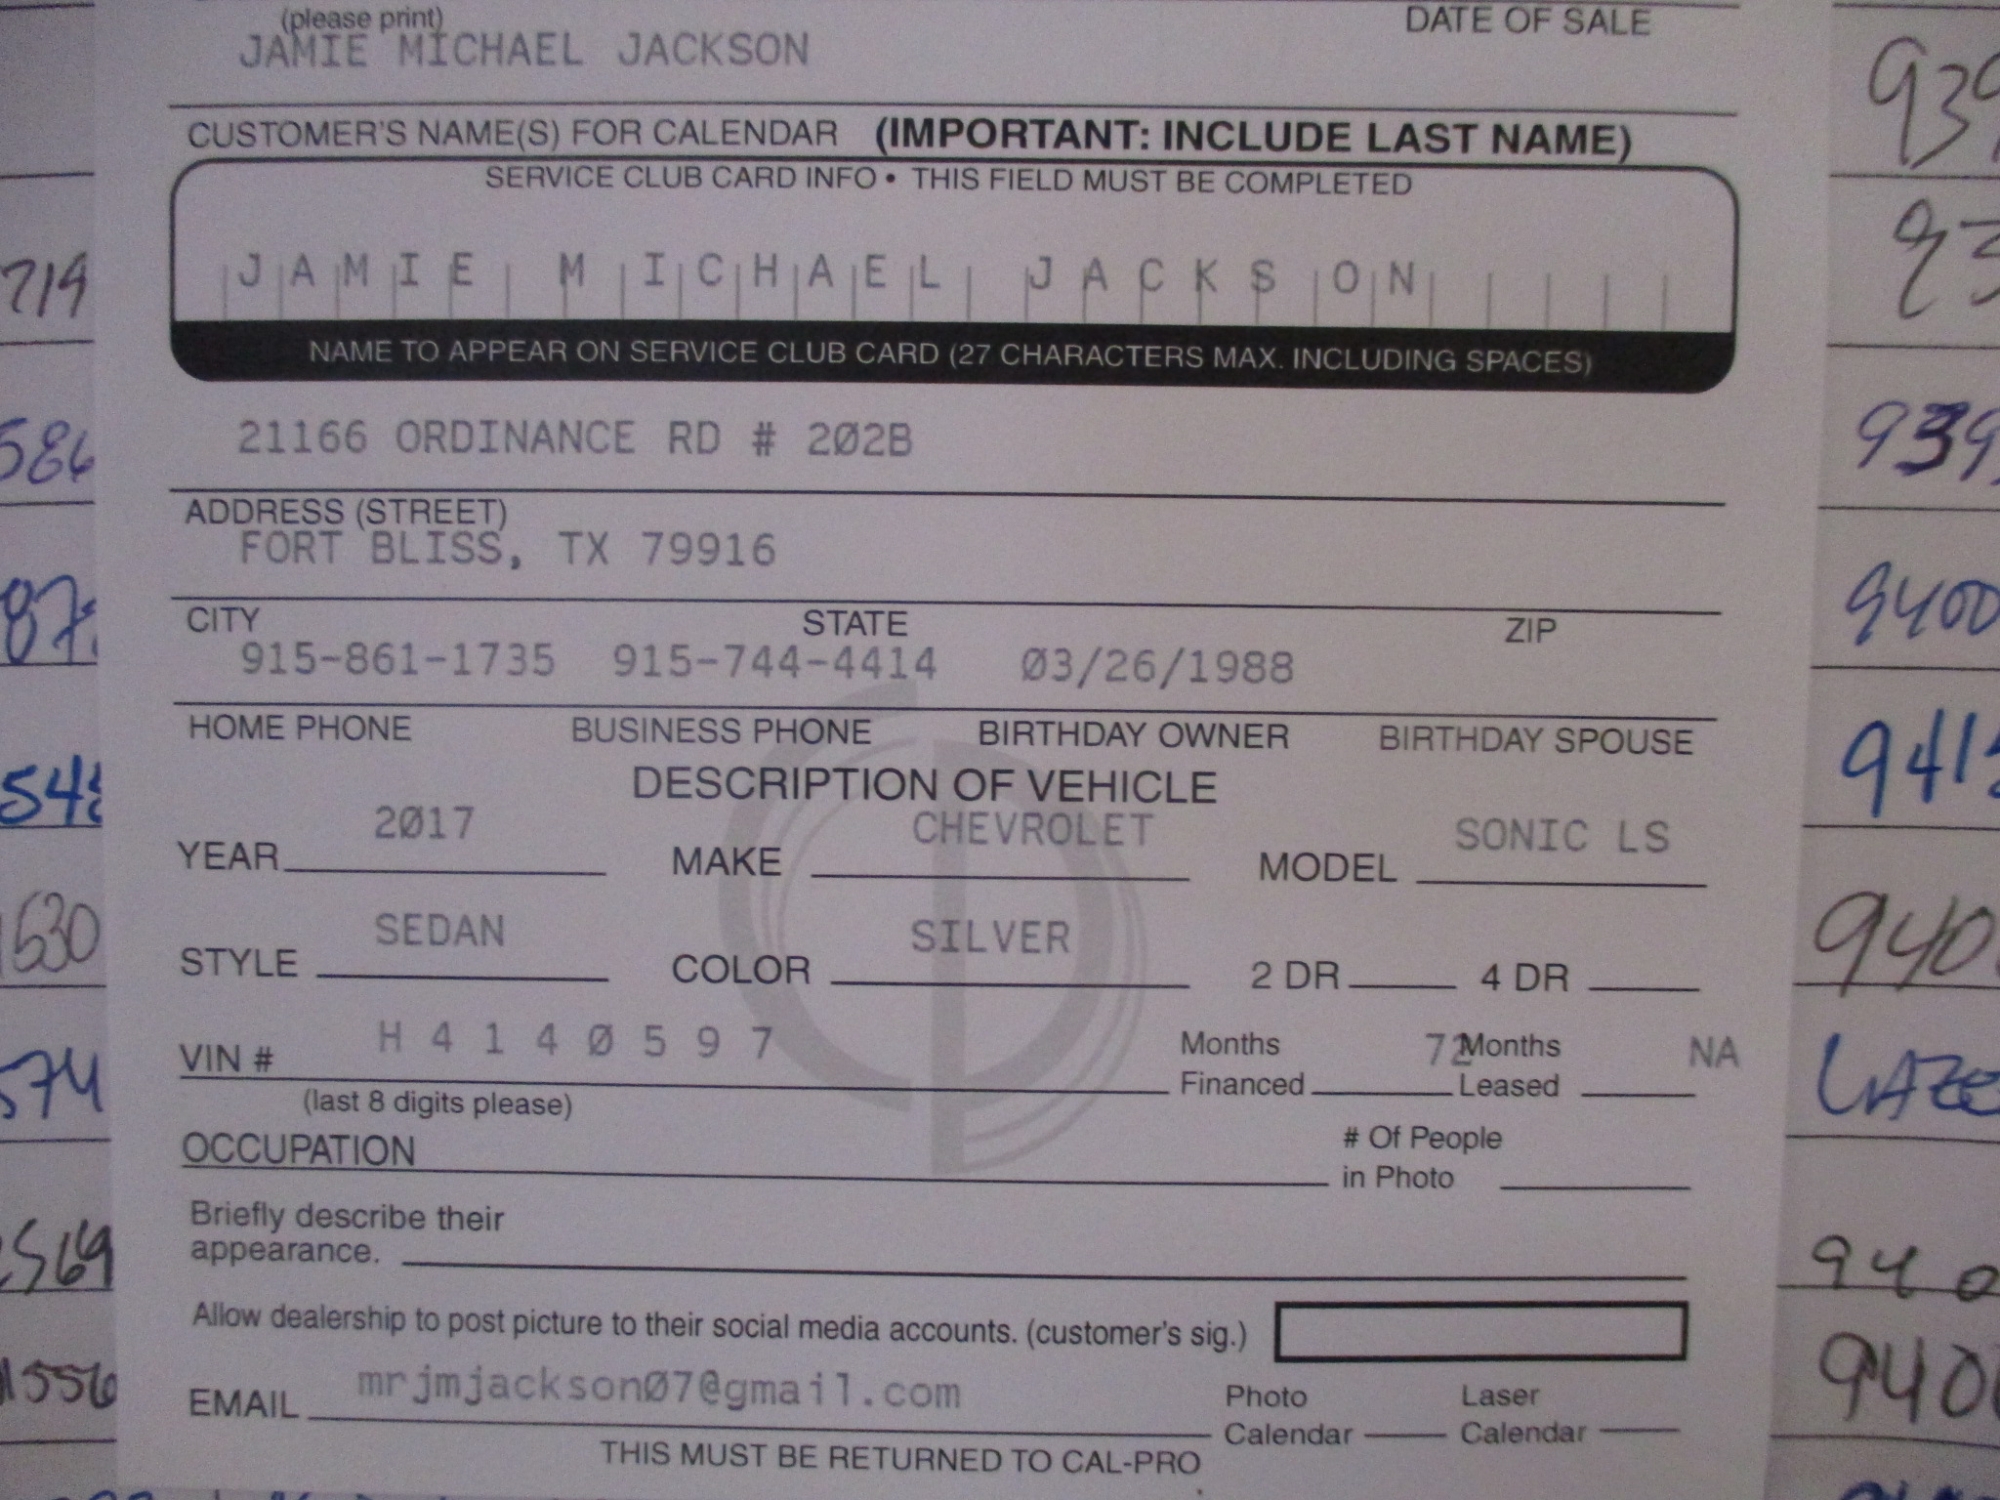 (please print) DATE OF SALE
JAMIE MICHAEL JACKSON
CUSTOMER'S NAME(S) FOR CALENDAR (IMPORTANT: INCLUDE LAST NAME)
SERVICE CLUB CARD INFO • THIS FIELD MUST BE COMPLETED
JAMIE MICHAEL JACKSON
NAME TO APPEAR ON SERVICE CLUB CARD (27 CHARACTERS MAX. INCLUDING SPACES)
21166 ORDINANCE RD # 202B
ADDRESS (STREET)
FORT BLISS, TX 79916
CITY STATE ZIP
915-861-1735 915-744-4414 03/26/1988
HOME PHONE BUSINESS PHONE BIRTHDAY OWNER BIRTHDAY SPOUSE
DESCRIPTION OF VEHICLE
YEAR 2017 MAKE CHEVROLET MODEL SONIC LS
STYLE SEDAN COLOR SILVER 2 DR 4 DR
VIN # H4140597 Months Financed 72 Months Leased NA
(last 8 digits please)
OCCUPATION # Of People in Photo
Briefly describe their
appearance.
Allow dealership to post picture to their social media accounts. (customer's sig.)
EMAIL mrjmjackson07@gmail.com Photo Calendar Laser Calendar
THIS MUST BE RETURNED TO CAL-PRO